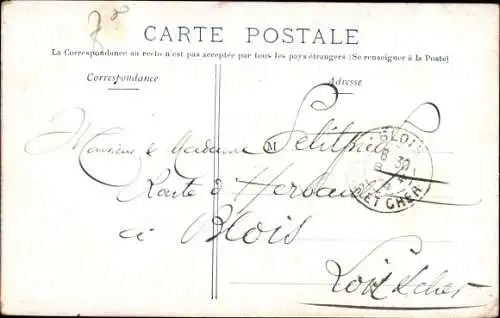 CARTE POSTALE
La Correspondance au recto n'est pas acceptée par tous les pays étrangers (Se renseigner à la Poste)
Correspondance
Adresse
Monsieur & Madame
M
BLOIS
8 30
LOIR ET CHER
Route d'Herbau
à Blois
Loir & cher